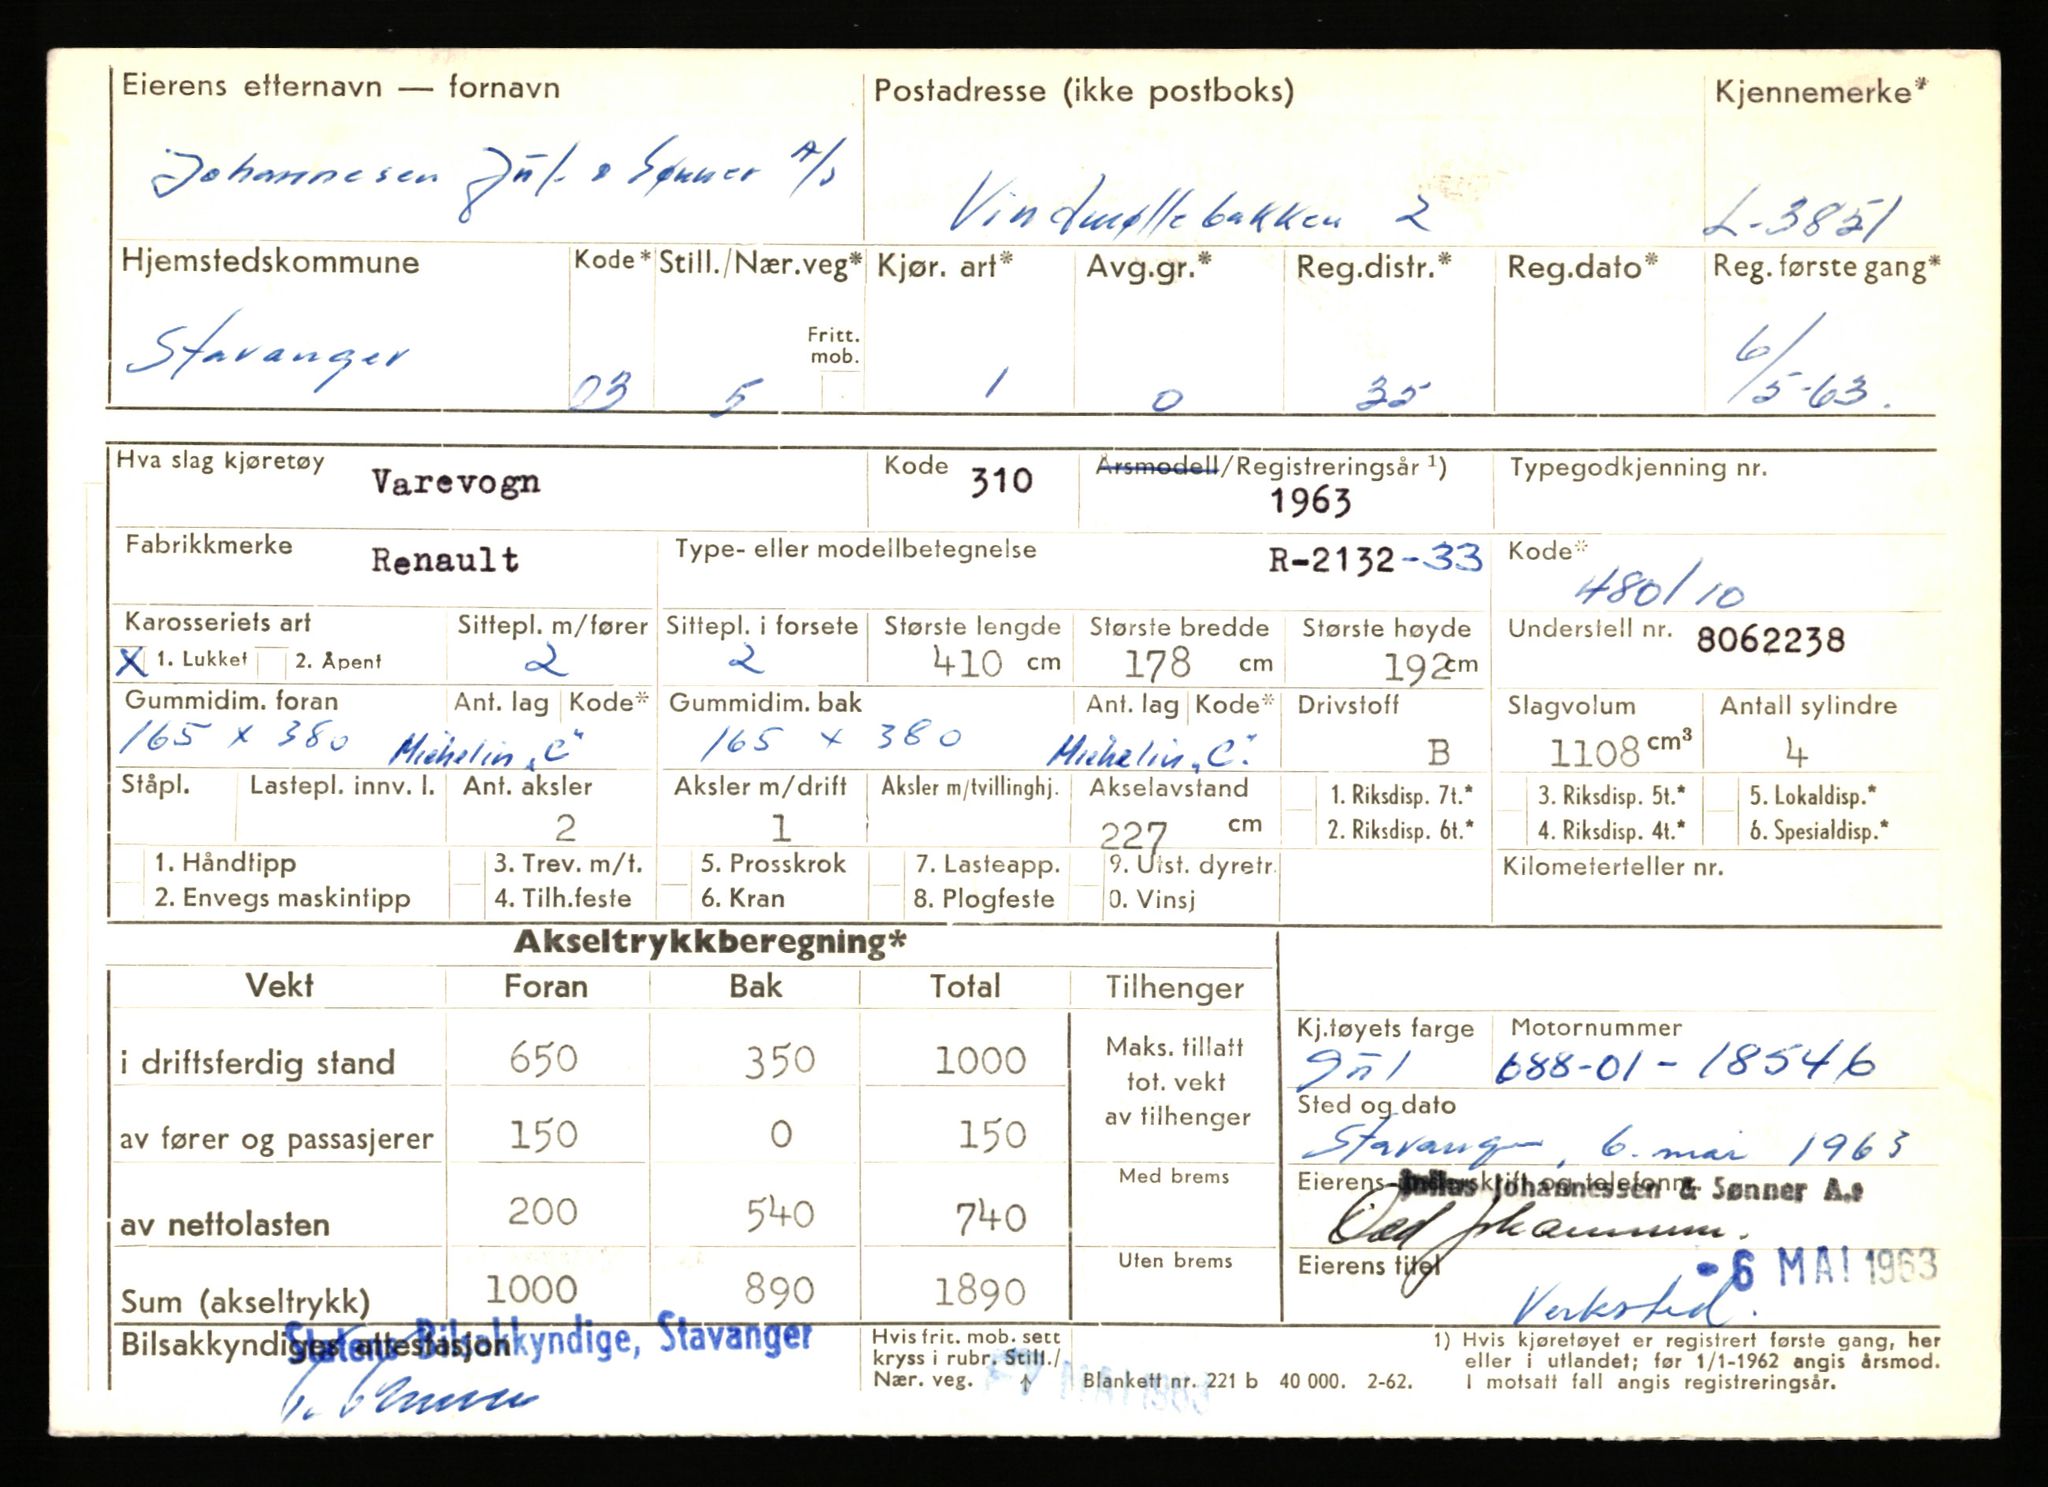 Eierens etternavn — fornavn Postadresse (ikke postboks) Kjennemerke*
Johannesen Jul. & Sønner A/s Vindmøllebakken 2 L-3851
Hjemstedskommune Kode* Still./Nær.veg* Kjør. art* Avg.gr.* Reg.distr.* Reg.dato* Reg. første gang*
Fritt. mob.
Stavanger 03 5 1 0 35 6/5-63.
Hva slag kjøretøy Varevogn Kode 310 Årsmodell/Registreringsår 1) 1963 Typegodkjenning nr.
Fabrikkmerke Renault Type- eller modellbetegnelse R-2132-33 Kode* 480/10
Karosseriets art Sittepl. m/fører Sittepl. i forsete Største lengde Største bredde Største høyde Understell nr. 8062238
X 1. Lukket 2. Åpent 2 2 410 cm 178 cm 192cm
Gummidim. foran Ant. lag Kode* Gummidim. bak Ant. lag Kode* Drivstoff Slagvolum Antall sylindre
165 x 380 Michelin „C" 165 x 380 Michelin „C". B 1108 cm³ 4
Ståpl. Lastepl. innv. l. Ant. aksler Aksler m/drift Aksler m/tvillinghj. Akselavstand 1. Riksdisp. 7t.* 3. Riksdisp. 5t.* 5. Lokaldisp.*
2 1 227 cm 2. Riksdisp. 6t.* 4. Riksdisp. 4t.* 6. Spesialdisp.*
1. Håndtipp 3. Trev. m/t. 5. Prosskrok 7. Lasteapp. 9. Utst. dyretr. Kilometerteller nr.
2. Envegs maskintipp 4. Tilh.feste 6. Kran 8. Plogfeste 0. Vinsj
Akseltrykkberegning*
Vekt Foran Bak Total Tilhenger
Kj.tøyets farge Motornummer
i driftsferdig stand 650 350 1000 Maks. tillatt tot. vekt av tilhenger gul 688-01-18546
Sted og dato
av fører og passasjerer 150 0 150 Stavanger, 6. mai 1963
Med brems Eierens underskrift og telefonnr. Julius Johannessen & Sønner A.s
av nettolasten 200 540 740 Odd Johannessen.
Uten brems Eierens titel - 6 MAI 1963
Sum (akseltrykk) 1000 890 1890 Verksted.
Bilsakkyndiges attestasjon Statens Bilsakkyndige, Stavanger
Hvis frit. mob. sett
kryss i rubr. Still./
Nær. veg. ↑ Blankett nr. 221 b 40 000. 2-62.
1) Hvis kjøretøyet er registrert første gang, her
eller i utlandet; før 1/1-1962 angis årsmod.
I motsatt fall angis registreringsår.